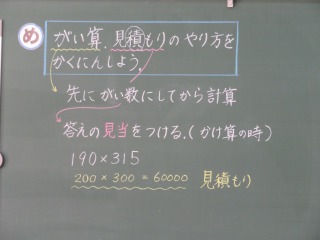 め
がい算、見積もりのやり方を
かくにんしよう。
先にがい数にしてから計算
答えの見当をつける。(かけ算の時)
190×315
200×300=60000 見積もり